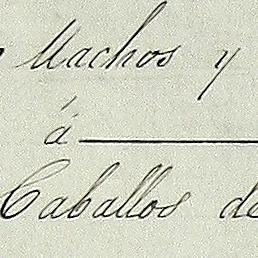 Machos y
á
Caballos de